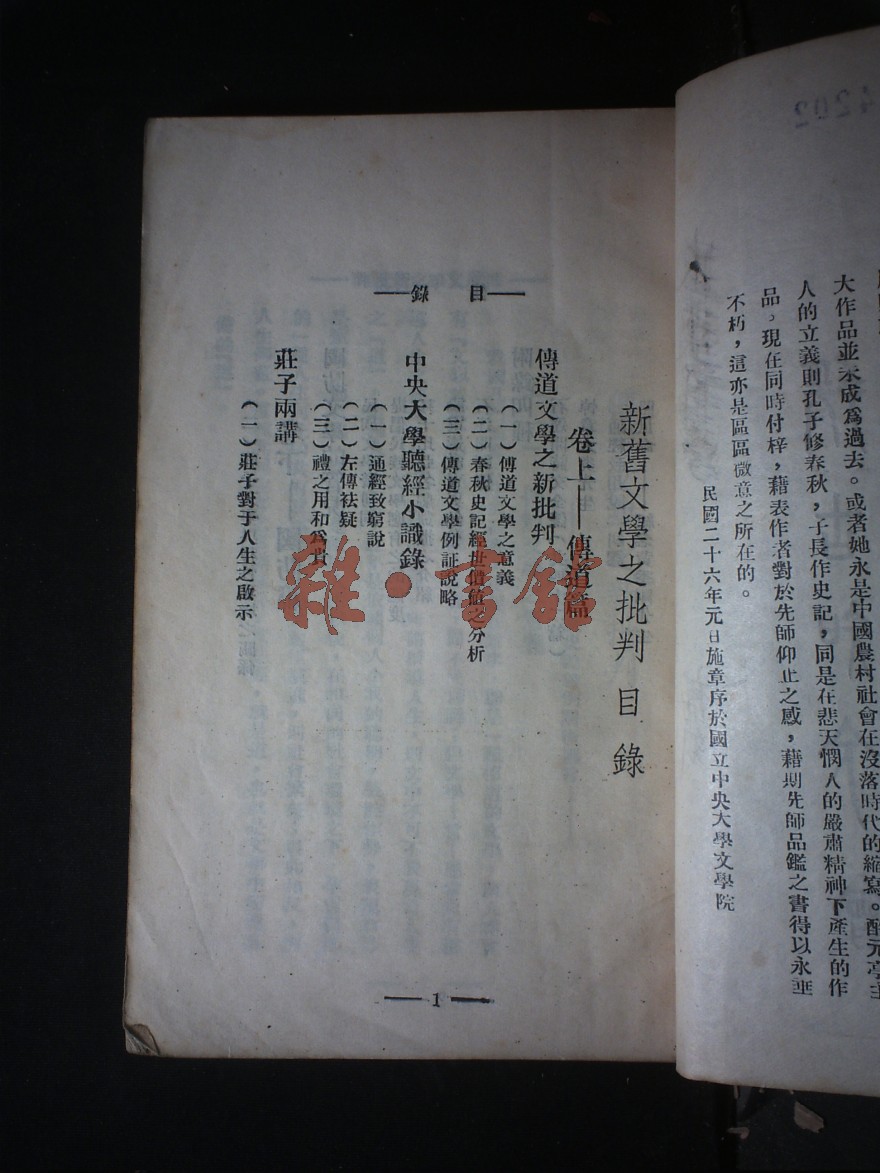 大作品並未成爲過去。或者她永是中國農村社會在沒落時代的縮寫。醉元亭主
人的立義則孔子修春秋，子長作史記，同是在悲天憫人的嚴肅精神下產生的作
品，現在同時付梓，藉表作者對於先師仰止之感，藉期先師品鑑之書得以永垂
不朽，這亦是區區微意之所在的。
民國二十六年元旦施章序於國立中央大學文學院
4202
目錄
新舊文學之批判目錄
卷上——傳道篇
傳道文學之新批判
（一）傳道文學之意義
（二）春秋史記經世價值之分析
（三）傳道文學例証說略
中央大學聽經小識錄
（一）通經致窮說
（二）左傳袪疑
（三）禮之用和爲貴
莊子兩講
（一）莊子對于人生之啟示
1
雜·書館